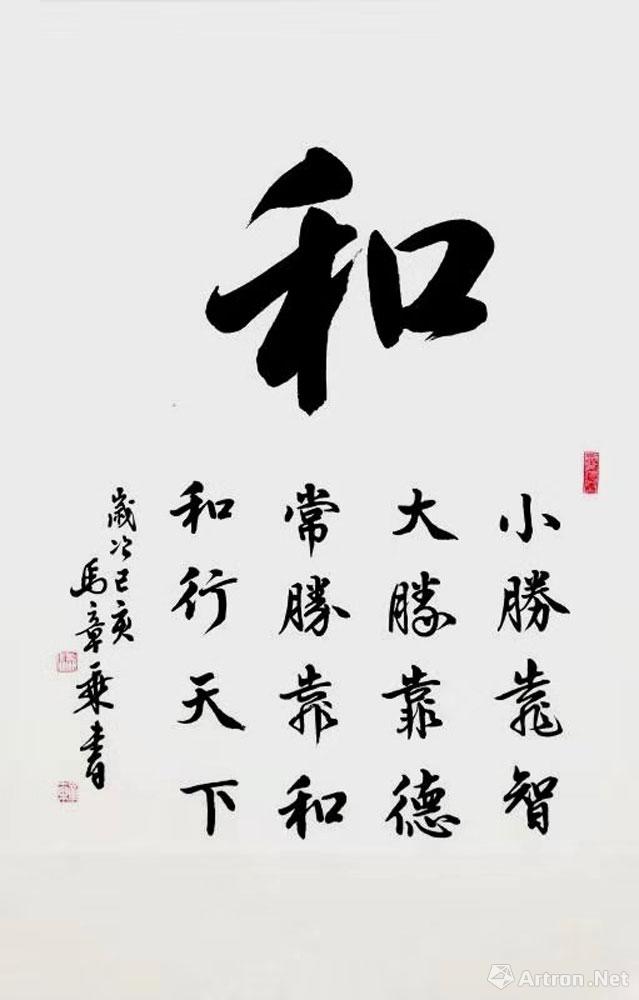 和
小勝靠智
大勝靠德
常勝靠和
和行天下
歲次己亥
馬章乘書
Artron.Net